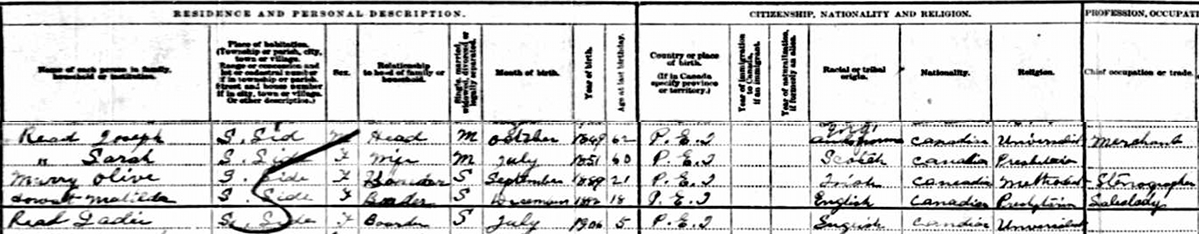 RESIDENCE AND PERSONAL DESCRIPTION. CITIZENSHIP, NATIONALITY AND RELIGION. PROFESSION, OCCUPAT
Name of each person in family, household or institution. Place of habitation. (Township or parish, city, town or village. Range or concession and lot or cadastral number if in township or parish. Street and house number if in city, town or village. Or other description.) Sex. Relationship to head of family or household. Single, married, widowed, divorced or legally separated. Month of birth. Year of birth. Age at last birthday. Country or place of birth. (If in Canada specify province or territory.) Year of immigration to Canada, if an immigrant. Year of naturalization, if formerly an alien. Racial or tribal origin. Nationality. Religion. Chief occupation or trade.
Read Joseph S. Side M Head M October 1849 62 P.E.I Canadian Universalist Merchant
" Sarah S. Side F Wife M July 1851 60 P.E.I Scotch Canadian Presbyterian
Murry Olive S. Side F Boarder S September 1889 21 P.E.I Irish Canadian Methodist Stenographer
Matilda S. Side F Boarder S December 18 P.E.I English Canadian Presbyterian Saleslady
Read S. Side F Boarder S July 1906 5 P.E.I English Canadian Universalist